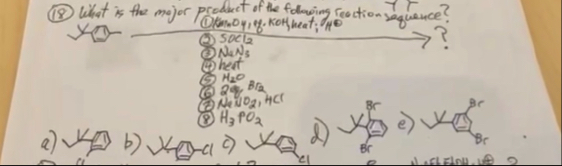 (18) What is the major product of the following reaction sequence?
① KMnO4, aq. KOH, heat; H3O⊕
② SOCl2
③ NaN3
④ heat
⑤ H2O
⑥ 2eq. Br2
⑦ NaNO2, HCl
⑧ H3PO2
?
a) b) Cl c) Cl d) Br Br e) Br Br